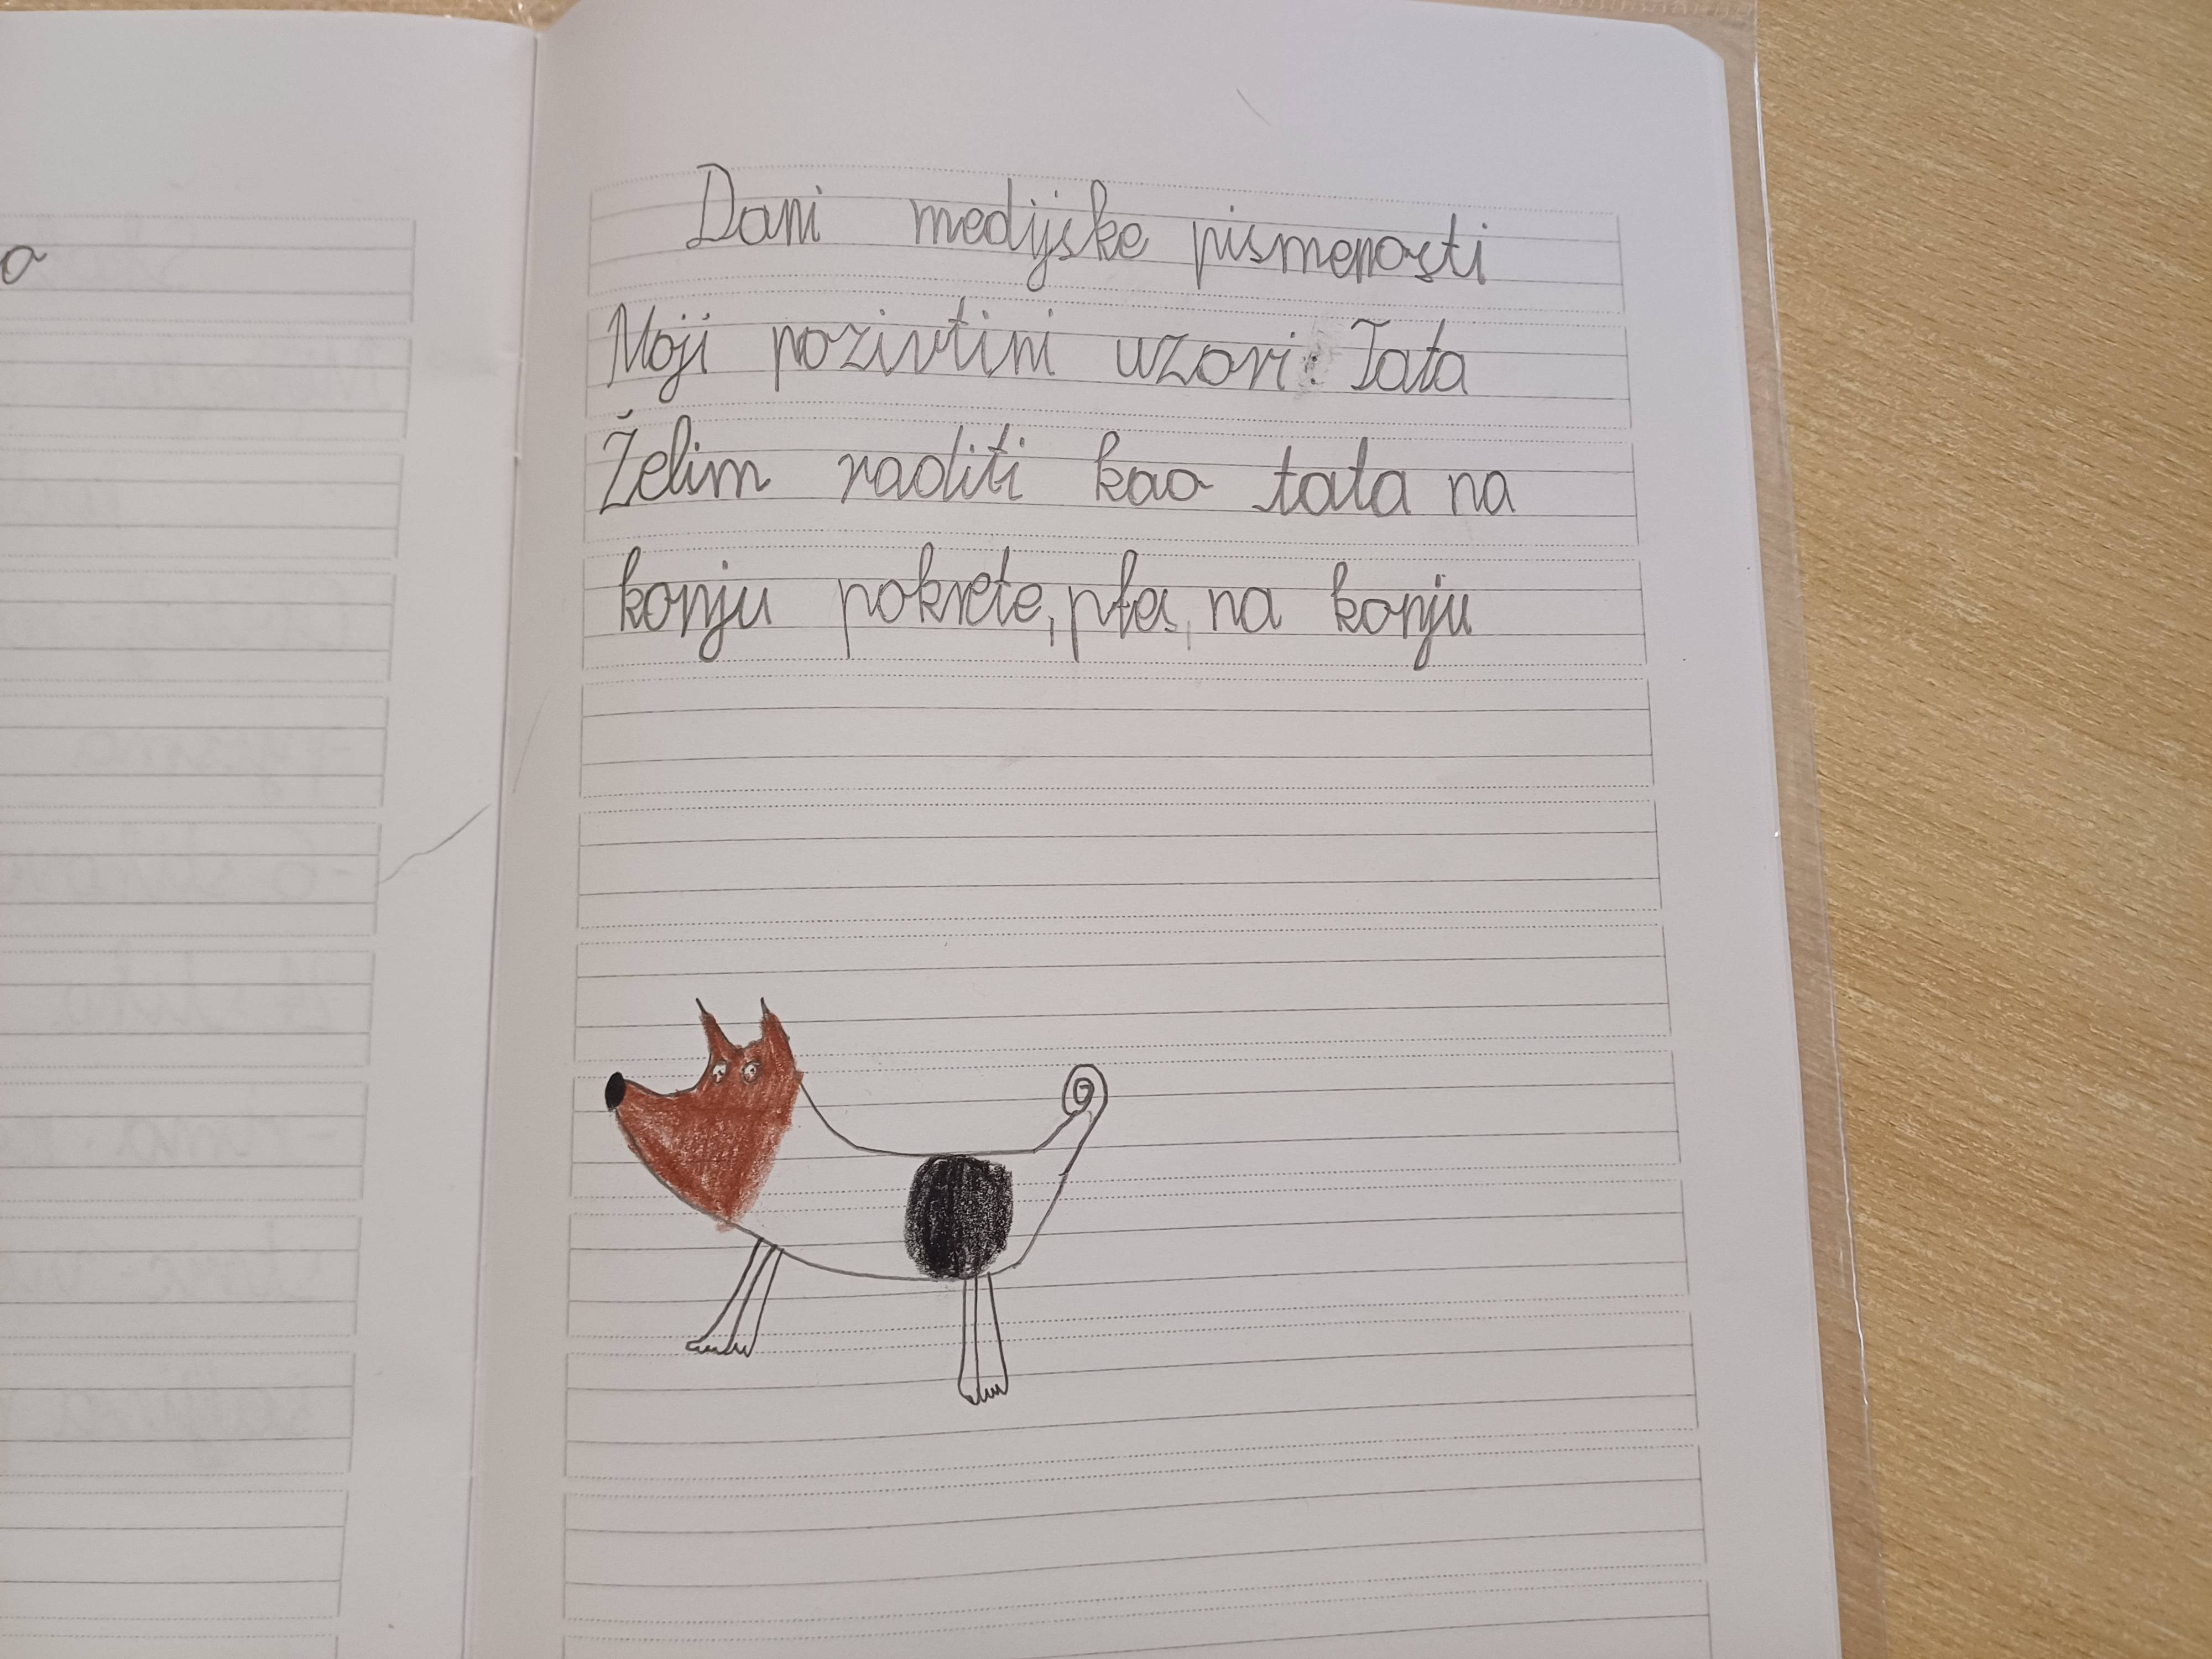 Dani medijske pismenosti
Moji pozivtini uzori: Tata
Želim raditi kao tata na
konju pokrete, ples, na konju